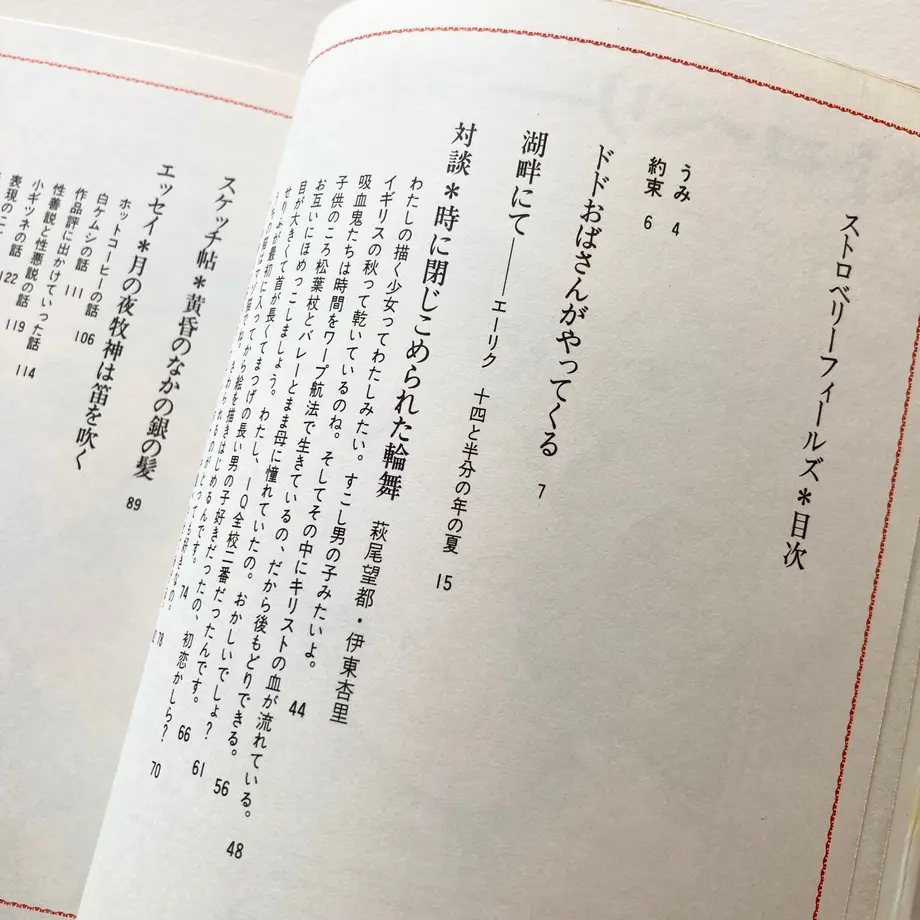 ストロベリーフィールズ＊目次
うみ 4
約束 6
ドドおばさんがやってくる 7
湖畔にて――エーリク 十四と半分の年の夏 15
対談＊時に閉じこめられた輪舞 萩尾望都・伊東杏里
わたしの描く少女ってわたしみたい。すこし男の子みたいよ。 44
イギリスの秋って乾いているのね。そしてその中にキリストの血が流れている。 48
吸血鬼たちは時間をワープ航法で生きているの、だから後もどりできる。 56
子供のころ松葉杖とバレーとまま母に憧れていたの。おかしいでしょ？ 61
お互いにほめっこしましょう。わたし、IQ全校二番だったんです。 66
目が大きくて首が長くてまつげの長い男の子好きだったの、初恋かしら？ 70
最初に入ってから絵を描きはじめるんです。 74
78
スケッチ帖＊黄昏のなかの銀の髪 89
エッセイ＊月の夜牧神は笛を吹く
ホットコーヒーの話 106
白ケムシの話 111
作品評に出かけていった話 114
性善説と性悪説の話 119
小ギツネの話 122
表現の二